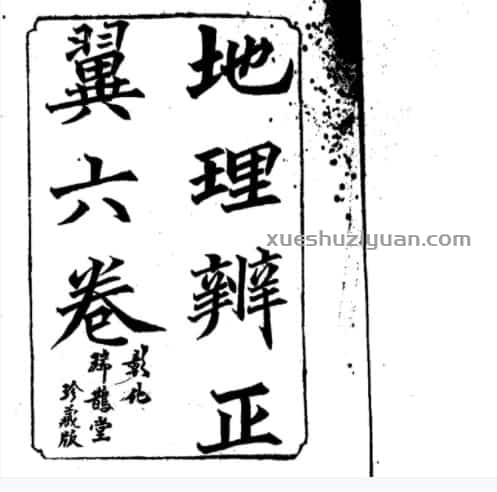 地理辨正
翼六卷
彰化
瑞鵲堂
珍藏版
xueshuziyuan.com